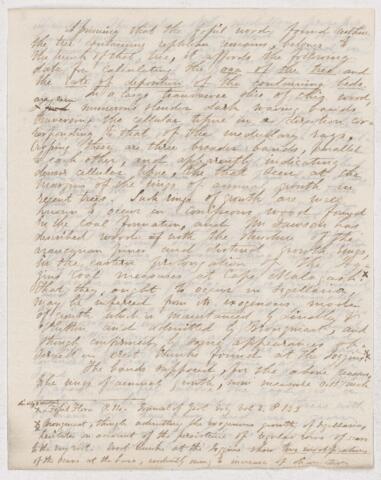 Assuming that the fossil wood, found within
the tree containing reptilian remains, belongs to
the trunk of that tree, it affords the following
data for calculating the age of the tree and
the rate of deposition of the containing beds.
In a large transverse slice of this wood,
are seen numerous slender dark waving bands
traversing the cellular tissue in a direction cor-
responding to that of the medullary rays.
Crossing these are three broader bands, parallel
to each other, and apparently indicating
denser cellular tissue, like that seen at the
margins of the rings of annual growth in
recent trees. Such rings of growth are well
known to occur in coniferous wood found
in the coal formation, and Mr Dawson has
described wood with the structure of the
araucarian pines and distinct growth rings,
in the eastern prolongation of the
coal measures at Cape Malagash.
That they ought to occur in Sigillariae
may be inferred from the exogenous mode
of growth which is maintained by Lindley &
Hutton and admitted by Brongniart, and
though confirmed by some appearances ob-
served in erect trunks found at the Joggins.
The bands supposed, for the above reasons,
the rings of annual growth, now measure
Fossil Flora Journal of Geol. Soc. vol 2. P
Brongniart, though admitting the exogenous growth of Sigillariae,
hesitates on account of the persistence of regular rows of scars
to the very root. Erect trunks at the Joggins show
of the scars at the base, evidently owing to increase of